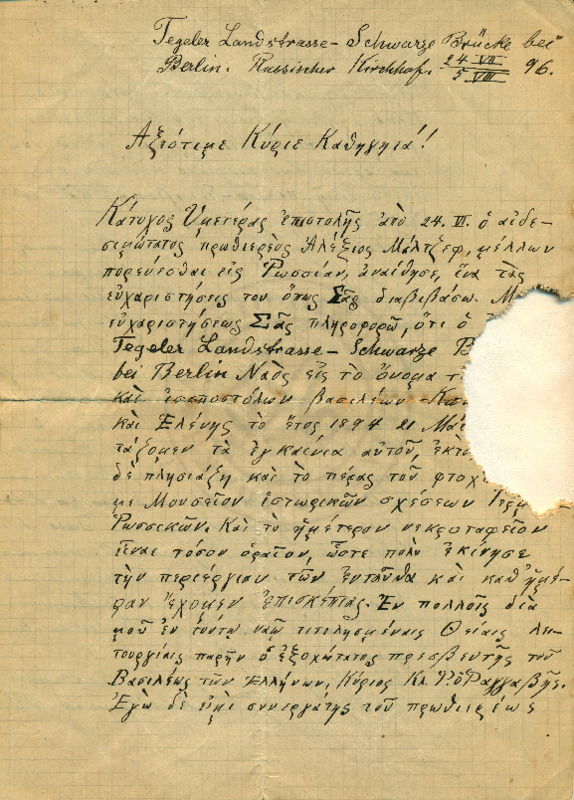 Tegeler Landstrasse – Schwarze Brücke bei
Berlin. Russischer Kirchhof. 24 VII / 5 VIII 96.
Ἀξιότιμε Κύριε Καθηγητά!
Κάτοχος Ὑμετέρας ἐπιστολῆς ἀπὸ 24. VI. ὁ αἰδε-
σιμώτατος πρωθιερεὺς Ἀλέξιος Μάλτζεφ, μέλλων
πορεύεσθαι εἰς Ῥωσσίαν, ἀναίθησε, ἵνα τὰς
εὐχαριστήσεις του ὅπως Σᾶς διαβιβάσω. Μ
εὐχαριστήσεως Σᾶς πληροφορῶ, ὅτι ὁ
Tegeler Landstrasse – Schwarze B
bei Berlin Ναὸς εἰς τὸ ὄνομα τ
καὶ ἰσαποστόλων βασιλέων Κω
καὶ Ἑλένης τὸ ἔτος 1894 21 Μάϊ
τάζομεν τὰ ἐγκαίνια αὐτοῦ, ἐκτ
δὲ πλησιάζῃ καὶ τὸ πέρας τοῦ πτοχ
με Μουσεῖον ἱστωρικῶν σχέσεων Γερμ
Ῥωσσικῶν. Καὶ τὸ ἡμέτερον νεκροταφεῖον
εἶναι τόσον ὁραῖον, ὥστε πολὺ ἐκίνησε
τὴν περιέργιαν τῶν ἐνταῦθα καὶ καθ' ἡμέ-
ραν ἔχομεν ἐπισκέψιας. Ἐν πολλοῖς διὰ
μοῦ ἐν τούτῳ ναῷ τιτελησμέναις Θείαις λει-
τουργίαις παρῆν ὁ ἐξοχώτατος πρεσβευτὴς τοῦ
Βασιλέως τῶν Ἑλλήνων, Κύριος Κλ. Ῥ. Ῥαγγαβῆς.
Ἐγὼ δὲ εἰμὶ συνεργάτης τοῦ πρωθιερέως